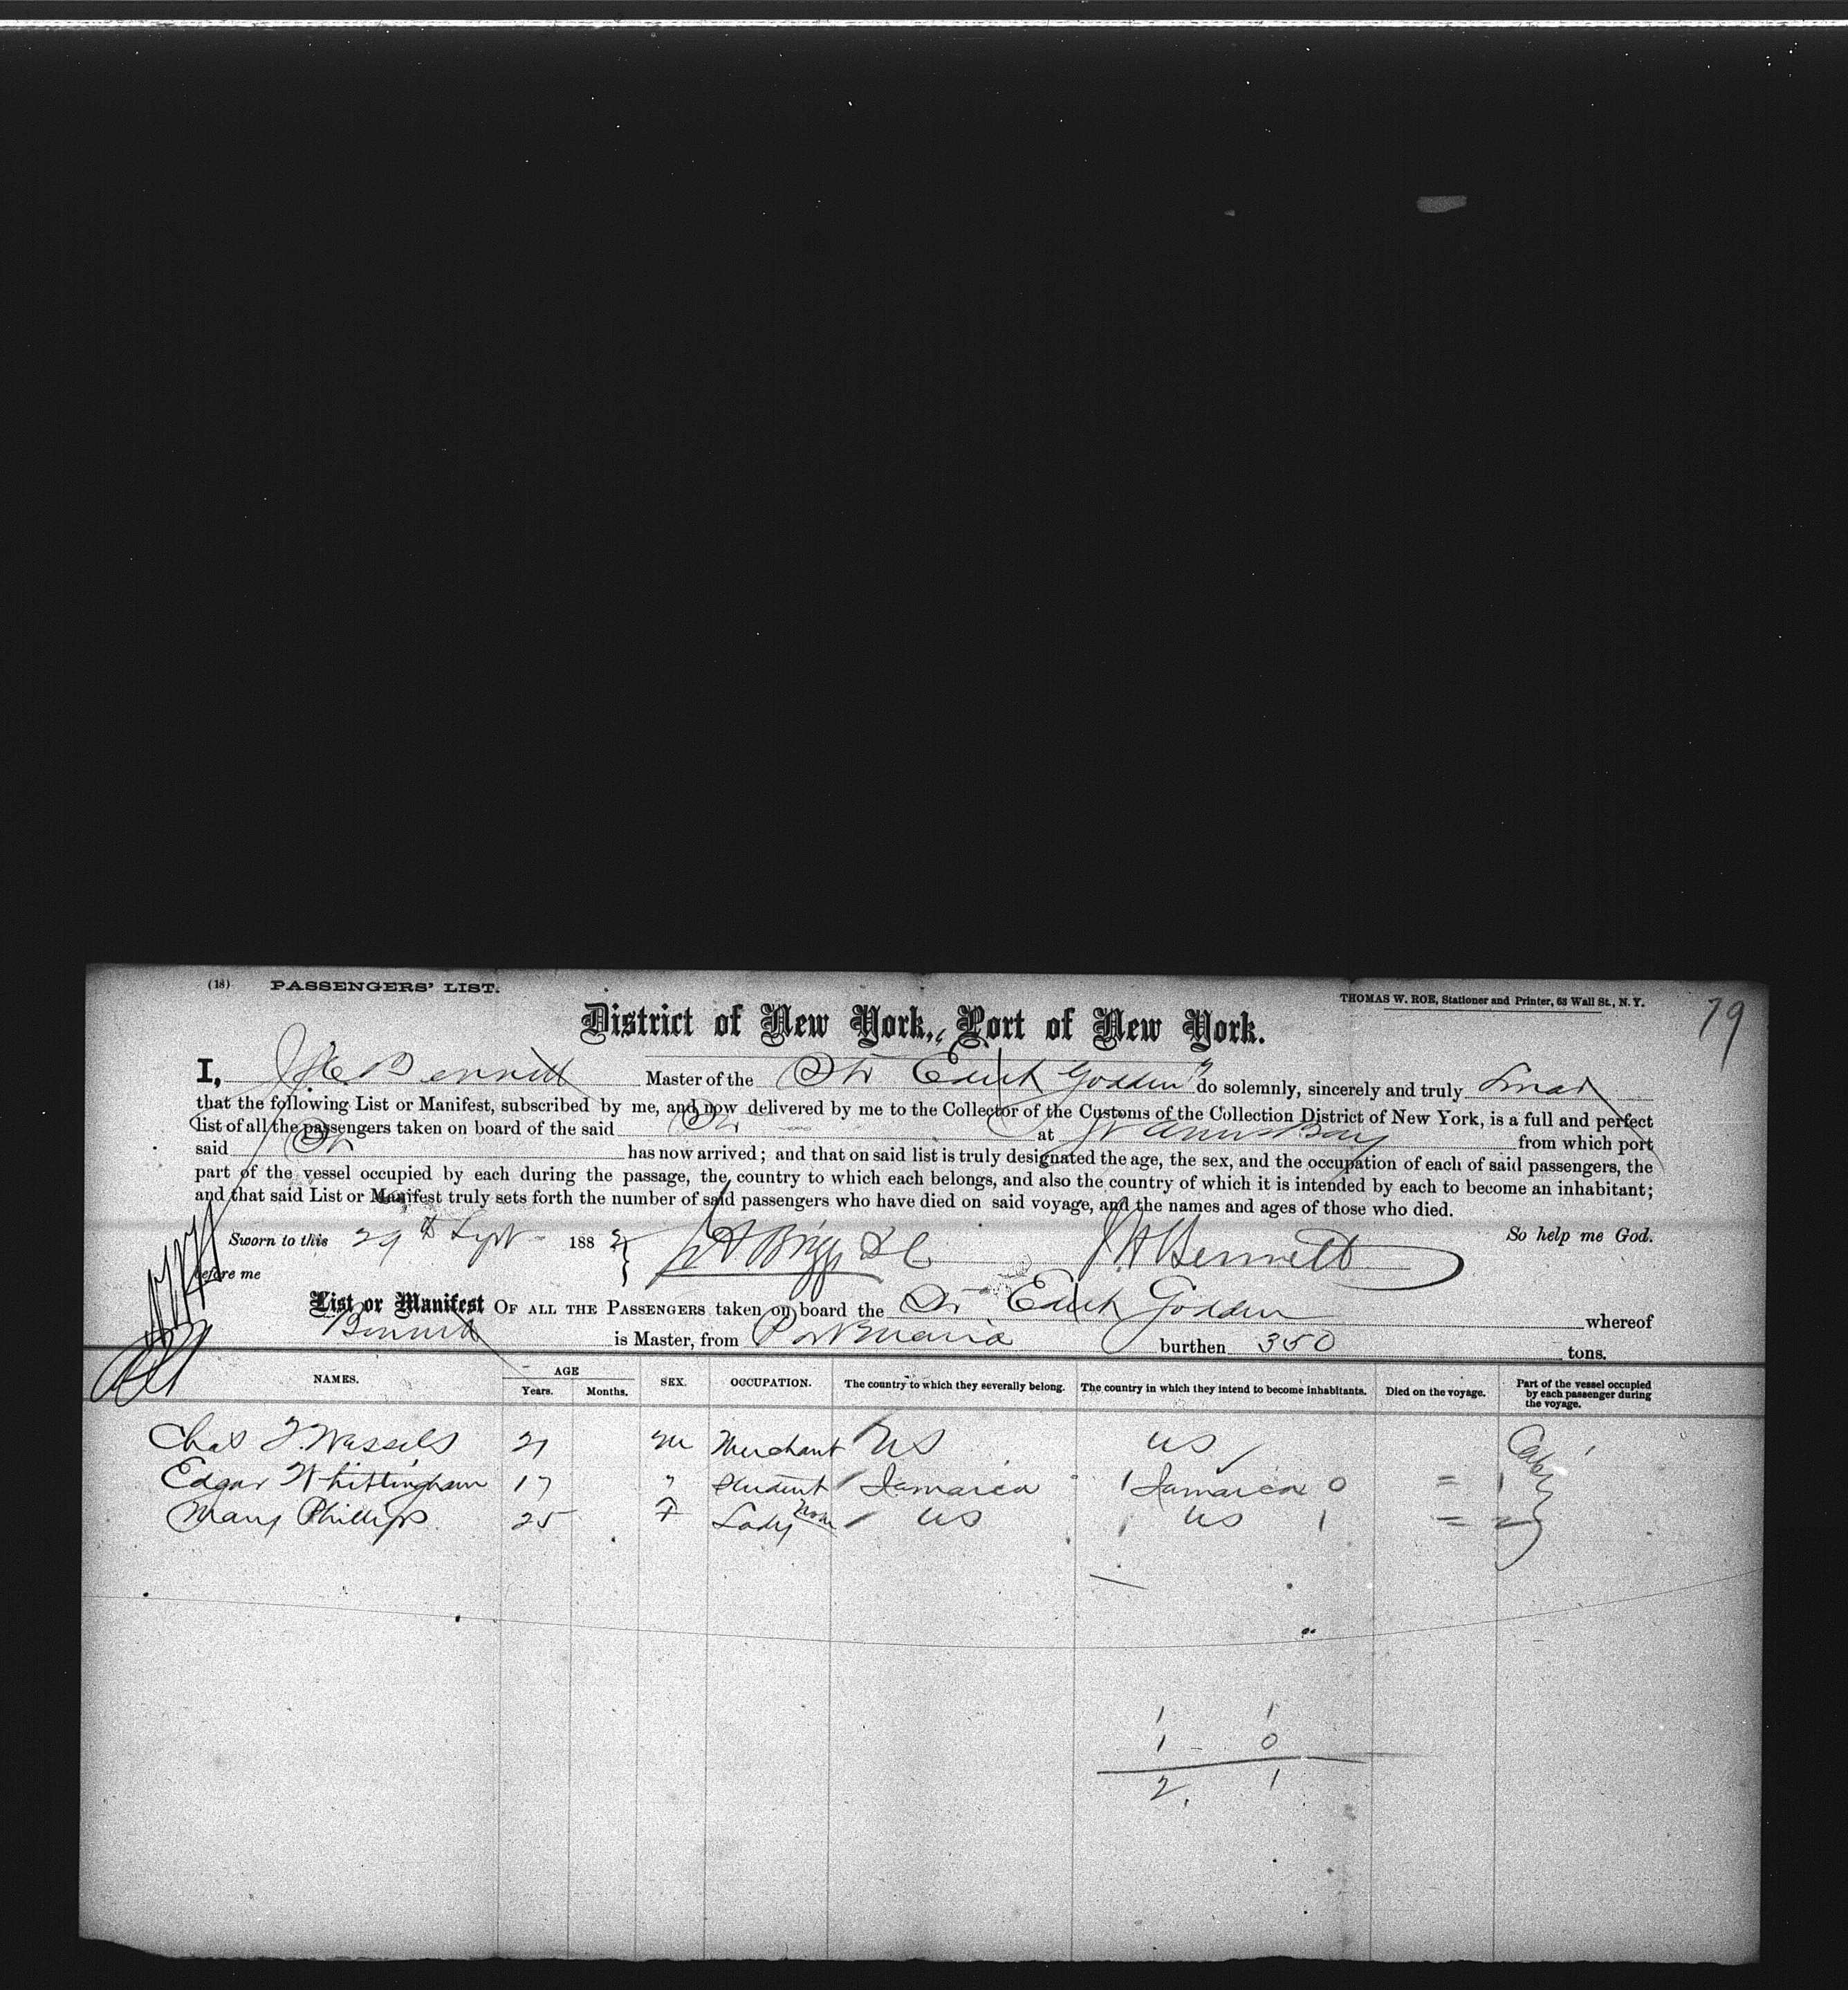 (18) PASSENGERS' LIST.
THOMAS W. ROE, Stationer and Printer, 63 Wall St., N. Y.
79
District of New York, Port of New York.
I, Bennett Master of the Str Edith Godden do solemnly, sincerely and truly Swear
that the following List or Manifest, subscribed by me, and now delivered by me to the Collector of the Customs of the Collection District of New York, is a full and perfect
list of all the passengers taken on board of the said Str at St Anns Bay from which port
said Str has now arrived; and that on said list is truly designated the age, the sex, and the occupation of each of said passengers, the
part of the vessel occupied by each during the passage, the country to which each belongs, and also the country of which it is intended by each to become an inhabitant;
and that said List or Manifest truly sets forth the number of said passengers who have died on said voyage, and the names and ages of those who died.
So help me God.
Sworn to this 29th Sept 1882 Briggs DC J H Bennett
before me
List or Manifest OF ALL THE PASSENGERS taken on board the Str Edith Godden whereof
Bennett is Master, from Port Maria burthen 350 tons.
NAMES. AGE Years. Months. SEX. OCCUPATION. The country to which they severally belong. The country in which they intend to become inhabitants. Died on the voyage. Part of the vessel occupied by each passenger during the voyage.
Chas F. Wessels M Merchant US US
Edgar Whittingham 17 " Student Jamaica 1 Jamaica 0 =
Mary Phillips 25 F Lady US 1 US 1 =
1 1
1 - 0
2 1